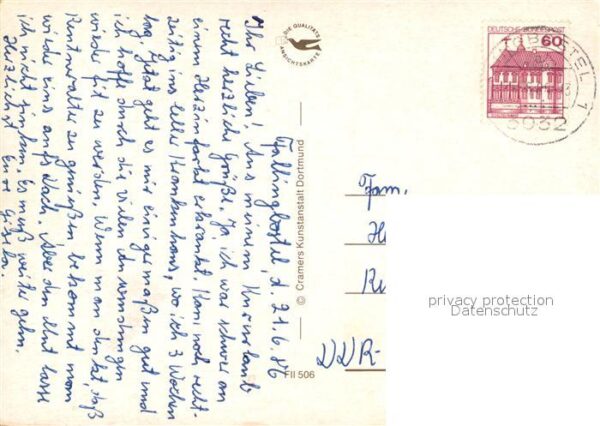 Fallingbostel, d. 21.6.86
Ihr Lieben! Aus meinem Kururlaub
recht herzliche Grüße. Ja, ich war schwer an
einem Herzinfarkt erkrankt. Kam noch recht-
zeitig ins Celler Krankenhaus, wo ich 3 Wochen
lag. Jetzt geht es mir einigermaßen gut und
ich hoffe durch die vielen Anwendungen
wieder fit zu werden. Wenn man denkt, daß
Rentneralter zu genießen bekommt man
wieder eins aufs Dach. Aber den Mut lasse
ich nicht sinken. Es muß weiter gehn.
Herzlichst Eure Gisela.
DIE QUALITÄTS
ANSICHTSKARTE
© Cramers Kunstanstalt Dortmund
FII 506
DEUTSCHE BUNDESPOST
60
Fam.
DDR-
privacy protection
Datenschutz